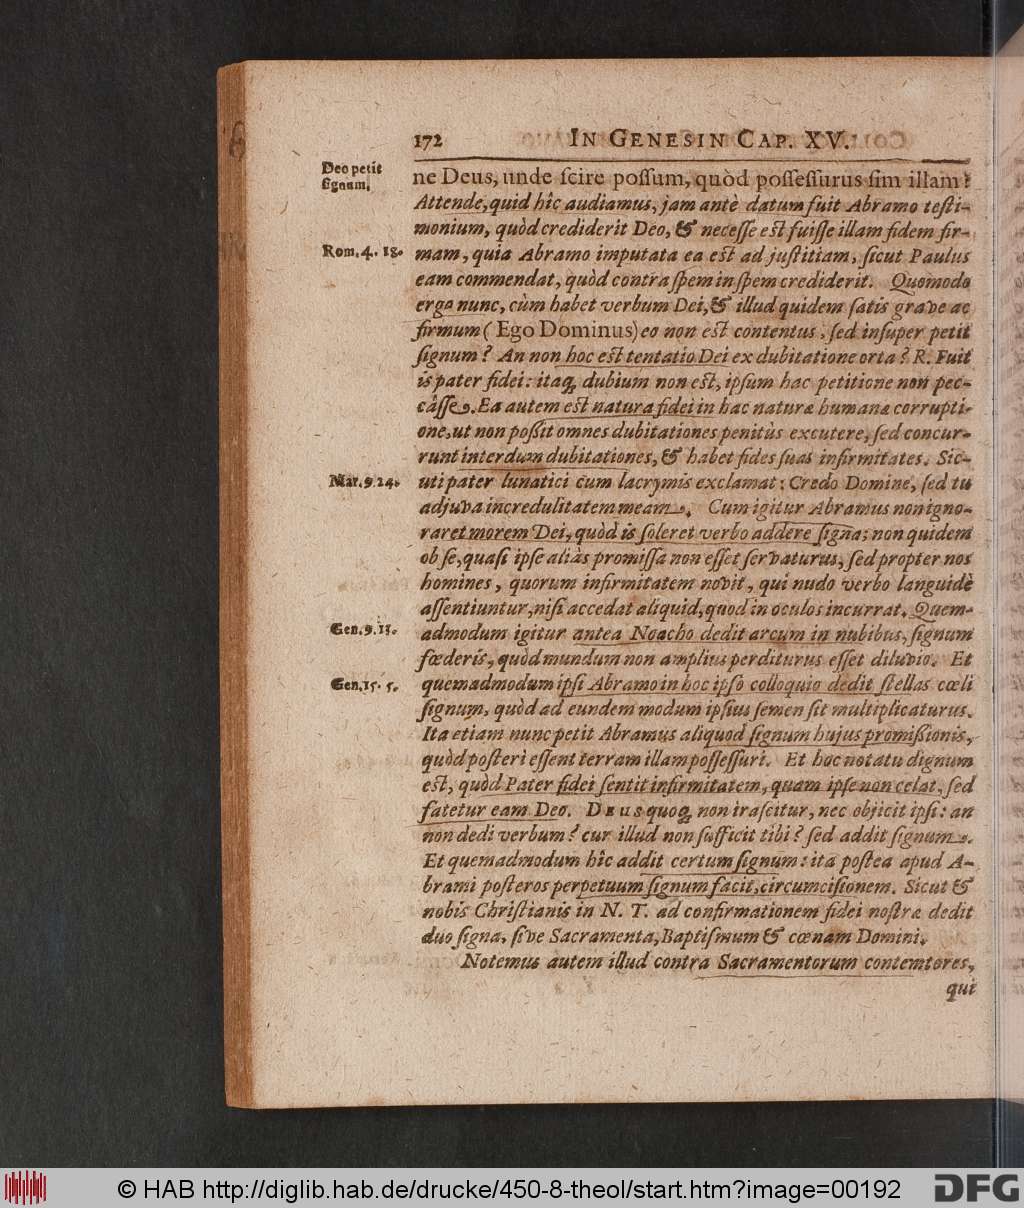 172 IN GENESIN CAP. XV.
Deo petit
signum.
ne Deus, unde scire possum, quòd possessurus sim illam?
Attende, quid hîc audiamus, jam antè datum fuit Abramo testi-
monium, quòd crediderit Deo, & necesse est fuisse illam fidem fir-
Rom. 4. 18.
mam, quia Abramo imputata ea est ad justitiam, sicut Paulus
eam commendat, quòd contra spem in spem crediderit. Quomodo
ergo nunc, cùm habet verbum Dei, & illud quidem satis grave ac
firmum (Ego Dominus) eo non est contentus, sed insuper petit
signum? An non hoc est tentatio Dei ex dubitatione orta? R. Fuit
is pater fidei: itaq; dubium non est, ipsum hac petitione non pec-
câsse. Ea autem est natura fidei in hac naturæ humanæ corrupti-
one, ut non poßit omnes dubitationes penitùs excutere, sed concur-
runt interdum dubitationes, & habet fides suas infirmitates. Sic-
Mar. 9. 24.
uti pater lunatici cum lacrymis exclamat: Credo Domine, sed tu
adjuva incredulitatem meam. Cum igitur Abramus non igno-
raret morem Dei, quòd is soleret verbo addere signa; non quidem
ob se, quasi ipse aliàs promissa non esset servaturus, sed propter nos
homines, quorum infirmitatem novit, qui nudo verbo languidè
assentiuntur, nisi accedat aliquid, quod in oculos incurrat. Quem-
Gen. 9. 13.
admodum igitur antea Noacho dedit arcum in nubibus, signum
fœderis, quòd mundum non amplius perditurus esset diluvio. Et
Gen. 15. 5.
quemadmodum ipsi Abramo in hoc ipso colloquio dedit stellas cœli
signum, quòd ad eundem modum ipsius semen sit multiplicaturus.
Ita etiam nunc petit Abramus aliquod signum hujus promißionis,
quòd posteri essent terram illam possessuri. Et hoc notatu dignum
est, quòd Pater fidei sentit infirmitatem, quam ipse non celat, sed
fatetur eam Deo. DEUS quoq; non irascitur, nec objicit ipsi: an
non dedi verbum? cur illud non sufficit tibi? sed addit signum.
Et quemadmodum hîc addit certum signum: ita postea apud A-
brami posteros perpetuum signum facit, circumcisionem. Sicut &
nobis Christianis in N. T. ad confirmationem fidei nostræ dedit
duo signa, sive Sacramenta, Baptismum & cœnam Domini.
Notemus autem illud contra Sacramentorum contemtores,
qui
© HAB http://diglib.hab.de/drucke/450-8-theol/start.htm?image=00192
DFG